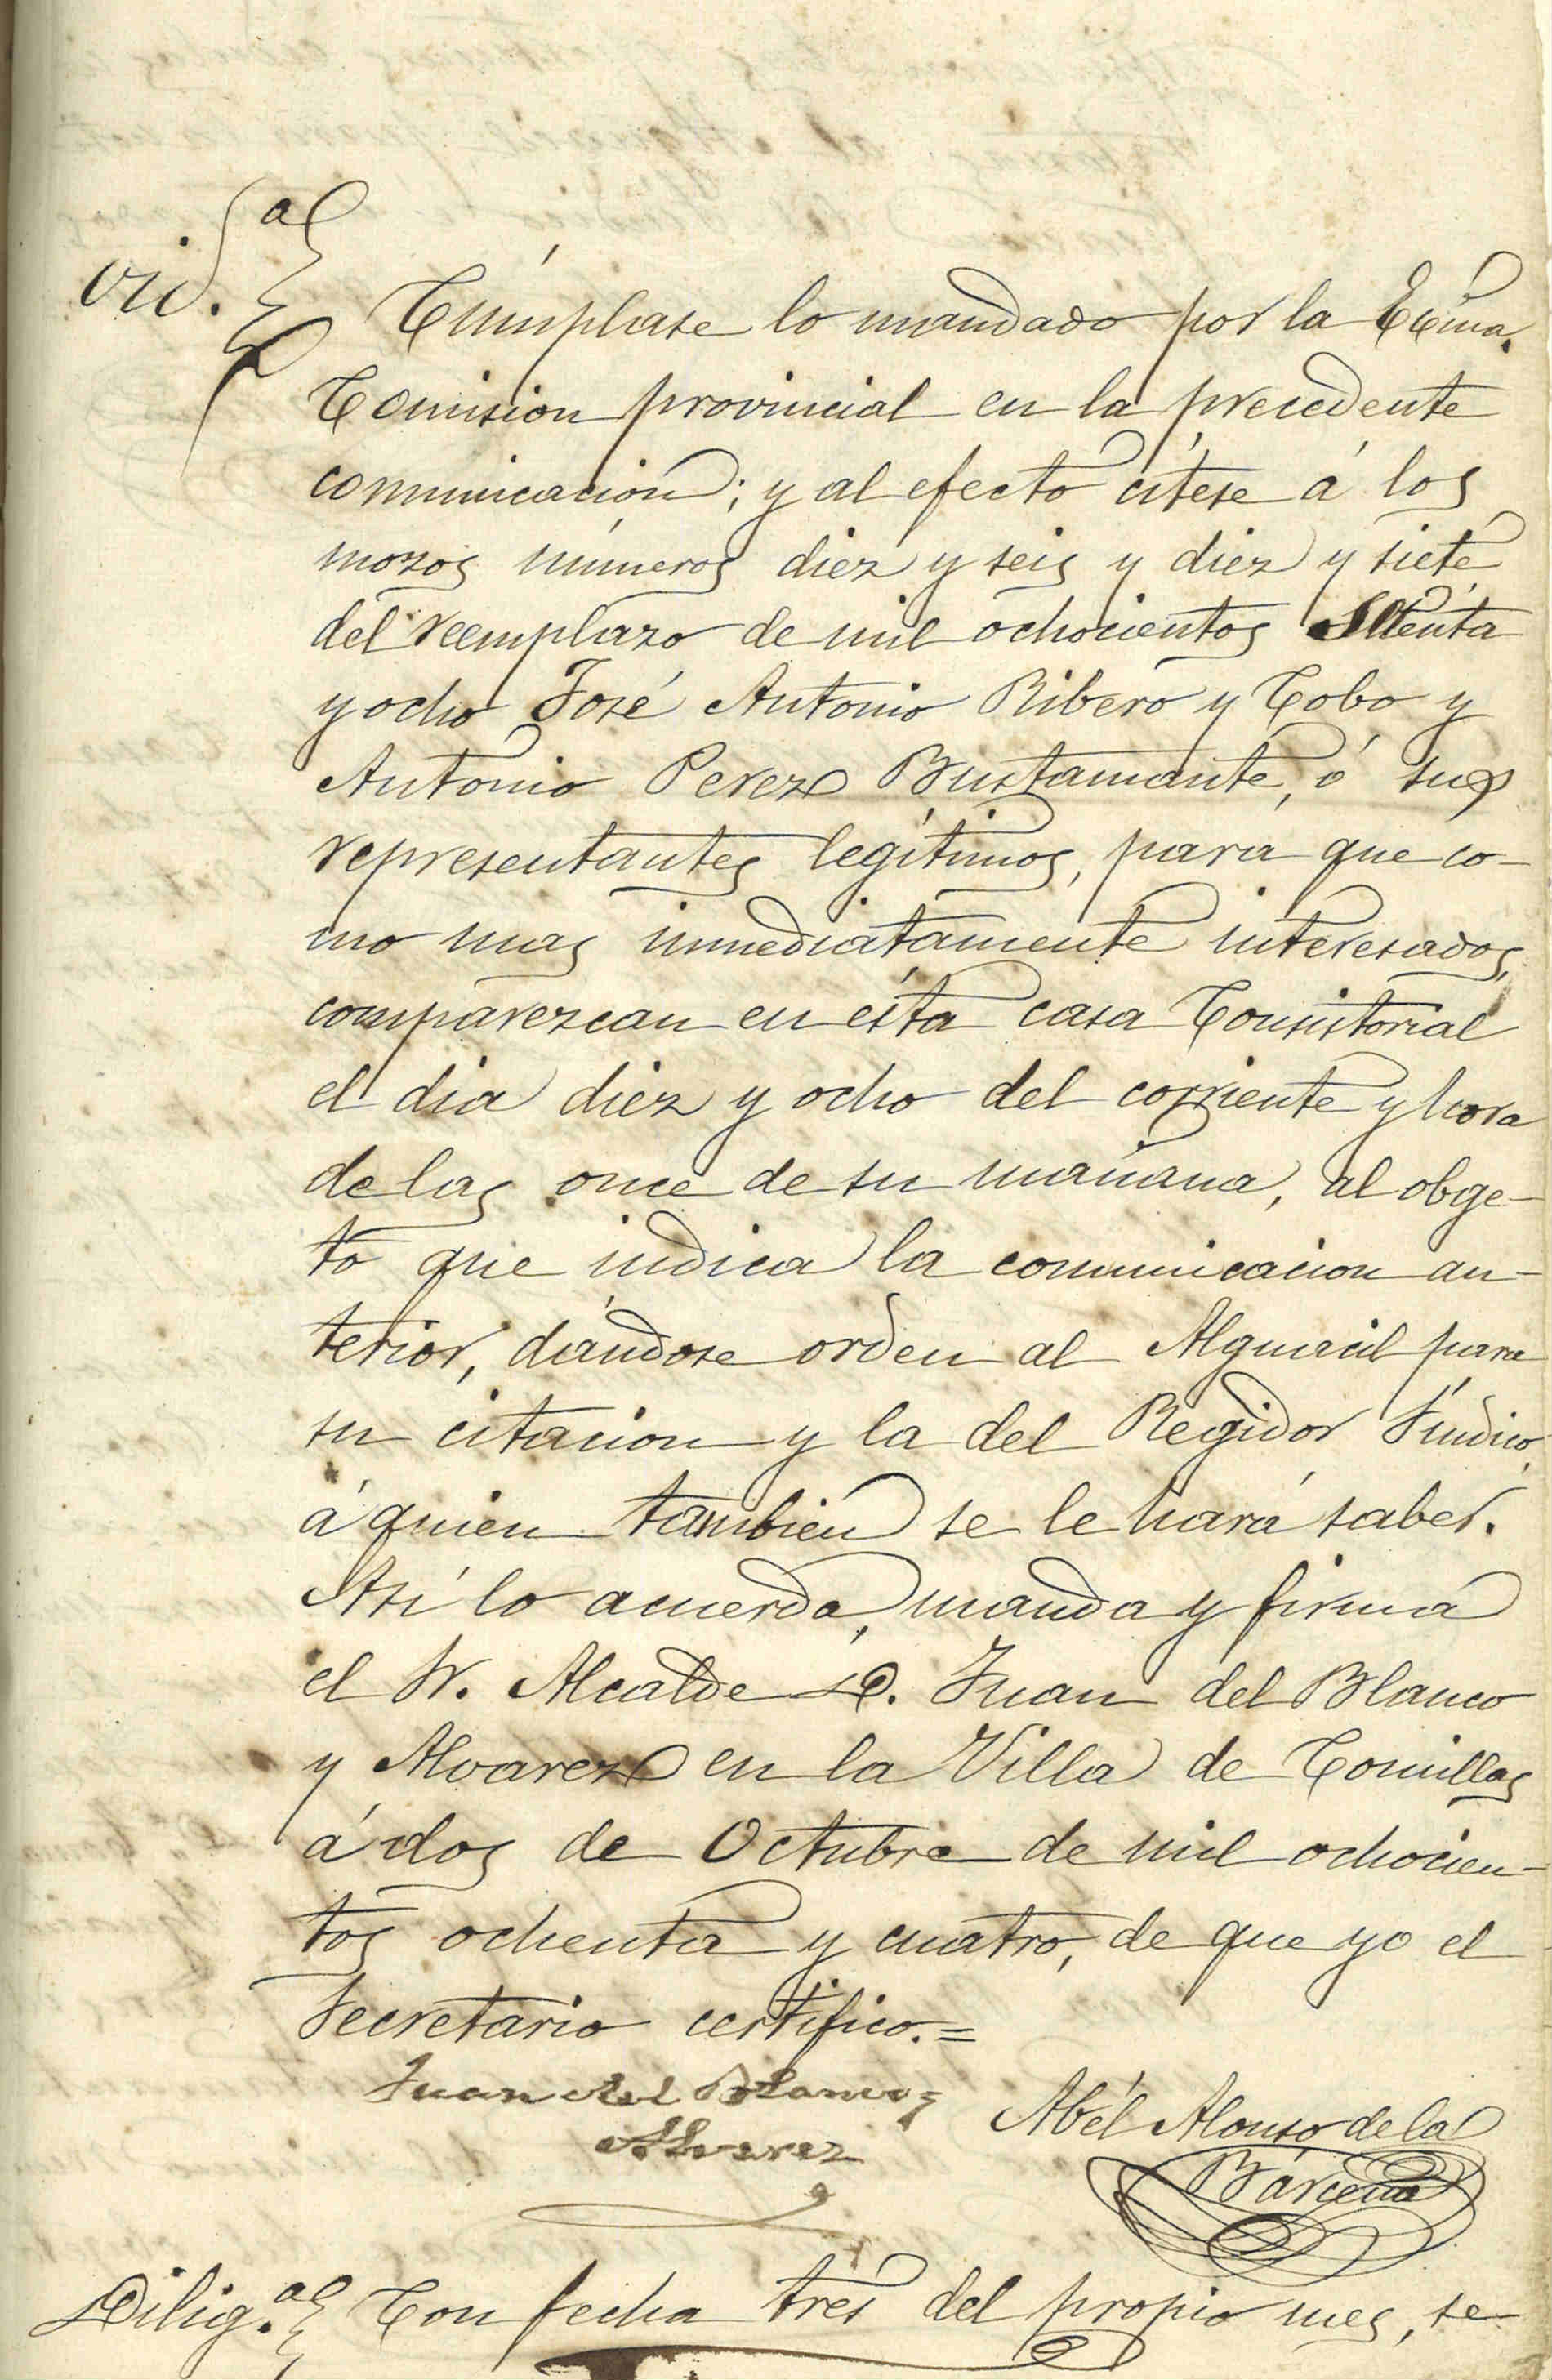 vid.ª
Cúmplase lo mandado por la Excma.
Comision provincial en la precedente
comunicacion; y al efecto cítese á los
mozos números diez y seis y diez y siete
del reemplazo de mil ochocientos setenta
y ocho José Antonio Ribero y Cobo y
Antonio Perez Bustamante, ó sus
representantes legítimos, para que co-
mo mas inmediatamente interesados,
comparezcan en ésta casa Consistorial
el dia diez y ocho del corriente y hora
de las once de su mañana, al obge-
to que indica la comunicacion an-
terior, dándose orden al Alguacil para
su citacion y la del Regidor Síndico,
á quien tambien se le hará saber.
Así lo acuerda, manda y firma
el Sr. Alcalde D. Juan del Blanco
y Alvarez en la Villa de Comillas
á dos de Octubre de mil ochocien-
tos ochenta y cuatro, de que yo el
Secretario certifico.=
Juan del Blanco y
Alvarez
Abél Alonso de la
Bárcena
Dilig.ª Con fecha tres del propio mes, se